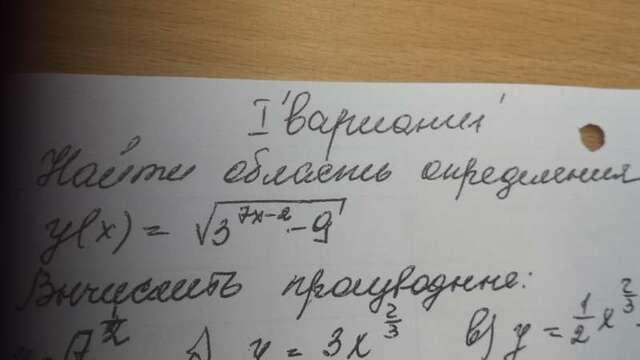 I 'вариант'
Найти область определения
y(x) = √(3^(7x-2) - 9)
Вычислить производные:
y = 3x^(2/3) в) y = 1/2 x^(2/3)